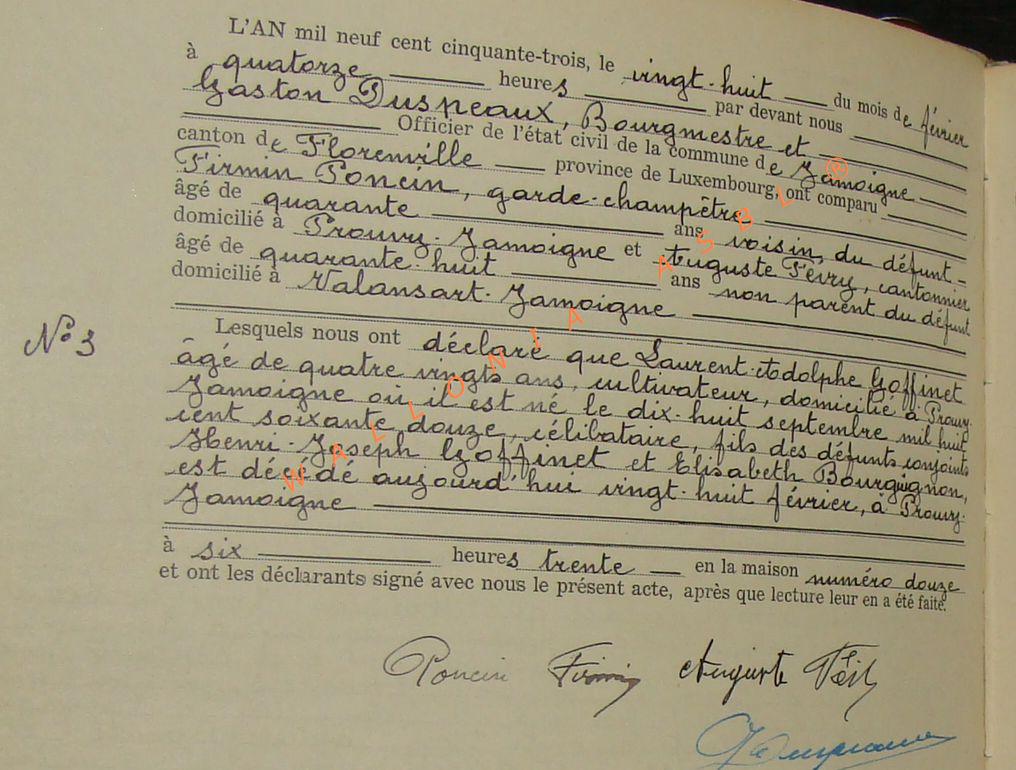 L'AN mil neuf cent cinquante-trois, le vingt-huit du mois de février
à quatorze heures par devant nous
Gaston Duspeaux, Bourgmestre et
Officier de l'état civil de la commune de Jamoigne
canton de Florenville province de Luxembourg, ont comparu
Firmin Poncin, garde-champêtre
âgé de quarante ans voisin du défunt
domicilié à Prouvy-Jamoigne et Auguste Févry, cantonnier
âgé de quarante-huit ans non parent du défunt
domicilié à Valansart-Jamoigne
N° 3
Lesquels nous ont déclaré que Laurent-Adolphe Goffinet
âgé de quatre vingts ans, cultivateur, domicilié à Prouvy-
Jamoigne où il est né le dix-huit septembre mil huit
cent soixante douze, célibataire, fils des défunts conjoints
Henri-Joseph Goffinet et Elisabeth Bourguignon,
est décédé aujourd'hui vingt-huit février, à Prouvy-
Jamoigne
à six heures trente en la maison numéro douze
et ont les déclarants signé avec nous le présent acte, après que lecture leur en a été faite.
Poncin Firmin Auguste
WALLONIA ASBL ®